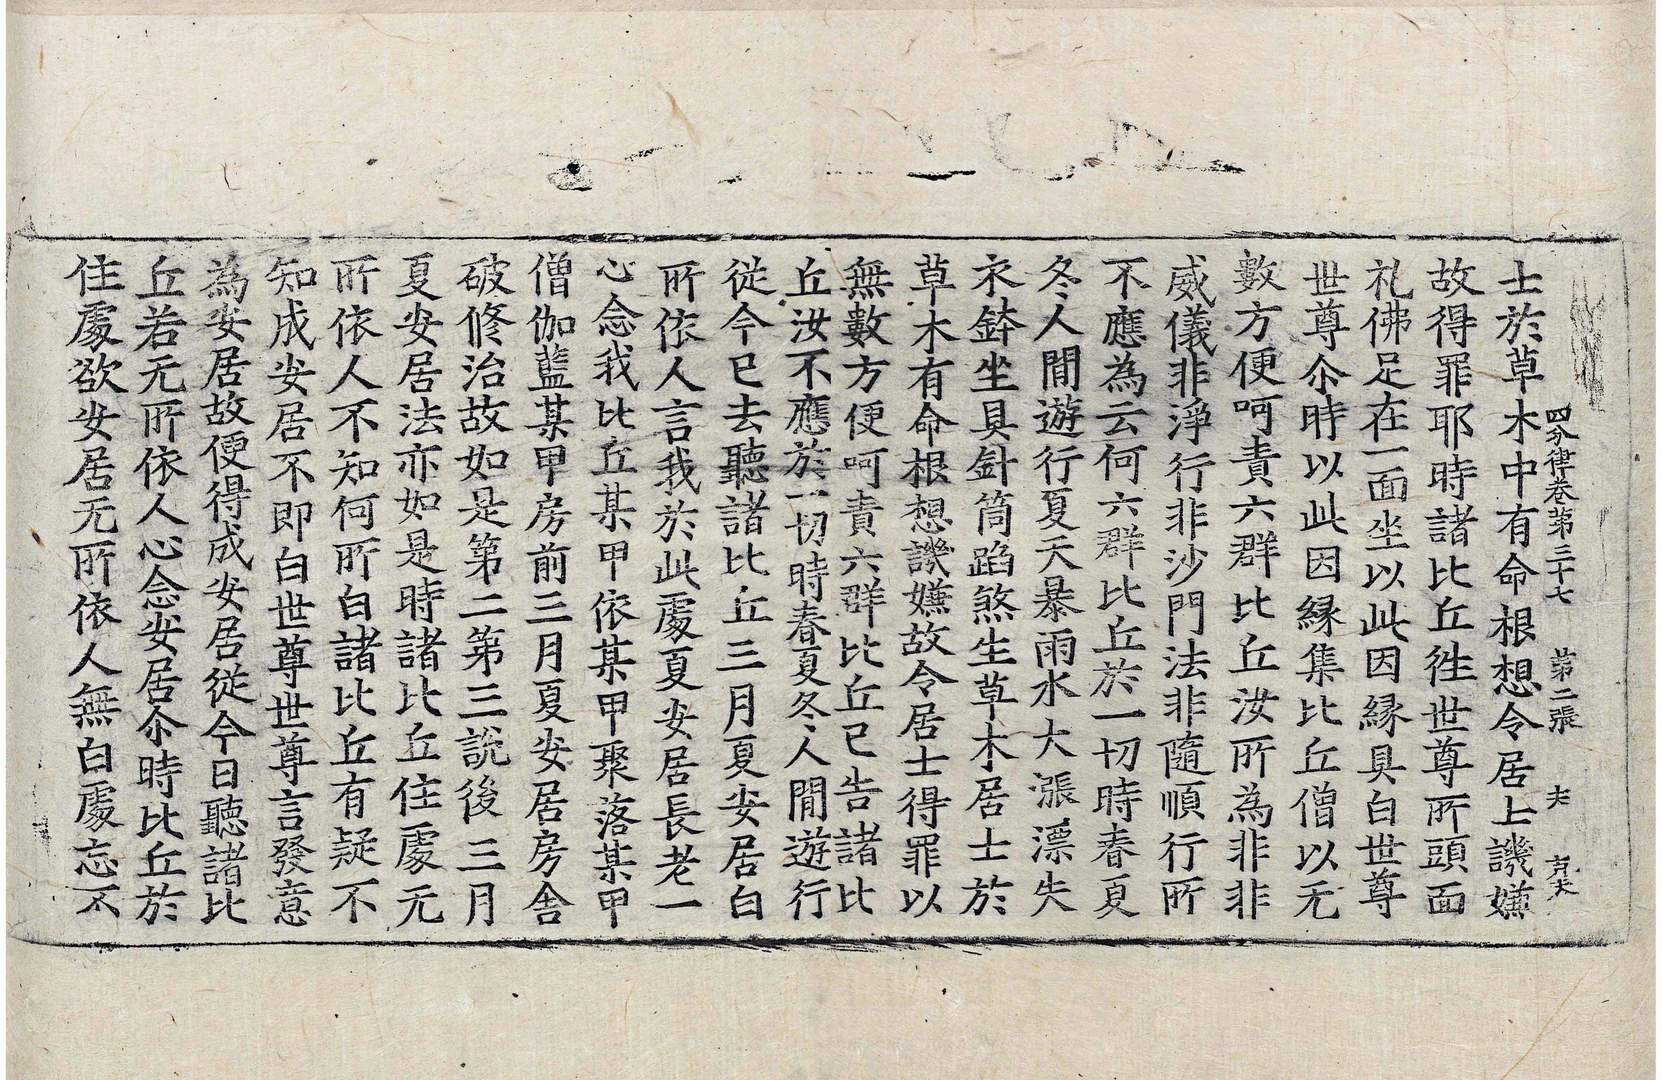 四分律卷第三十七 第二張 夫
士於草木中有命根想令居士譏嫌
故得罪耶時諸比丘往世尊所頭面
礼佛足在一面坐以此因縁具白世尊
世尊尒時以此因縁集比丘僧以无
數方便呵責六群比丘汝所為非非
威儀非淨行非沙門法非隨順行所
不應為云何六群比丘於一切時春夏
冬人間遊行夏天暴雨水大漲漂失
衣鉢坐具針筒蹈煞生草木居士於
草木有命根想譏嫌故令居士得罪以
無數方便呵責六群比丘已告諸比
丘汝不應於一切時春夏冬人間遊行
從今已去聽諸比丘三月夏安居白
所依人言我於此處夏安居長老一
心念我比丘某甲依某甲聚落某甲
僧伽藍某甲房前三月夏安居房舍
破修治故如是第二第三說後三月
夏安居法亦如是時諸比丘住處无
所依人不知何所白諸比丘有疑不
知成安居不即白世尊世尊言發意
為安居故便得成安居從今日聽諸比
丘若无所依人心念安居尒時比丘於
住處欲安居无所依人無白處忘不